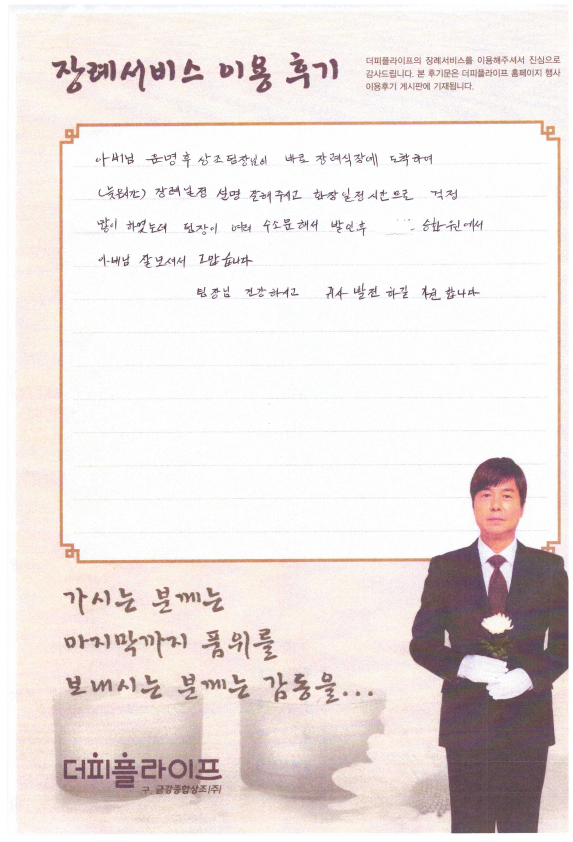 장례서비스 이용 후기
더피플라이프의 장례서비스를 이용해주셔서 진심으로
감사드립니다. 본 후기문은 더피플라이프 홈페이지 행사
이용후기 게시판에 기재됩니다.
아버님 운명후 상조팀장님이 바로 장례식장에 도착하여
(늦은시간) 장례일정 설명 잘해주시고 화장일정시간으로 걱정
많이 하였는데 팀장이 여러 수소문해서 발인후 승화원에서
아버님 잘 보셔서 고맙습니다
팀장님 건강하시고 귀사 발전 하길 기원 합니다
가시는 분께는
마지막까지 품위를
보내시는 분께는 감동을...
더피플라이프
구. 금강종합상조(주)